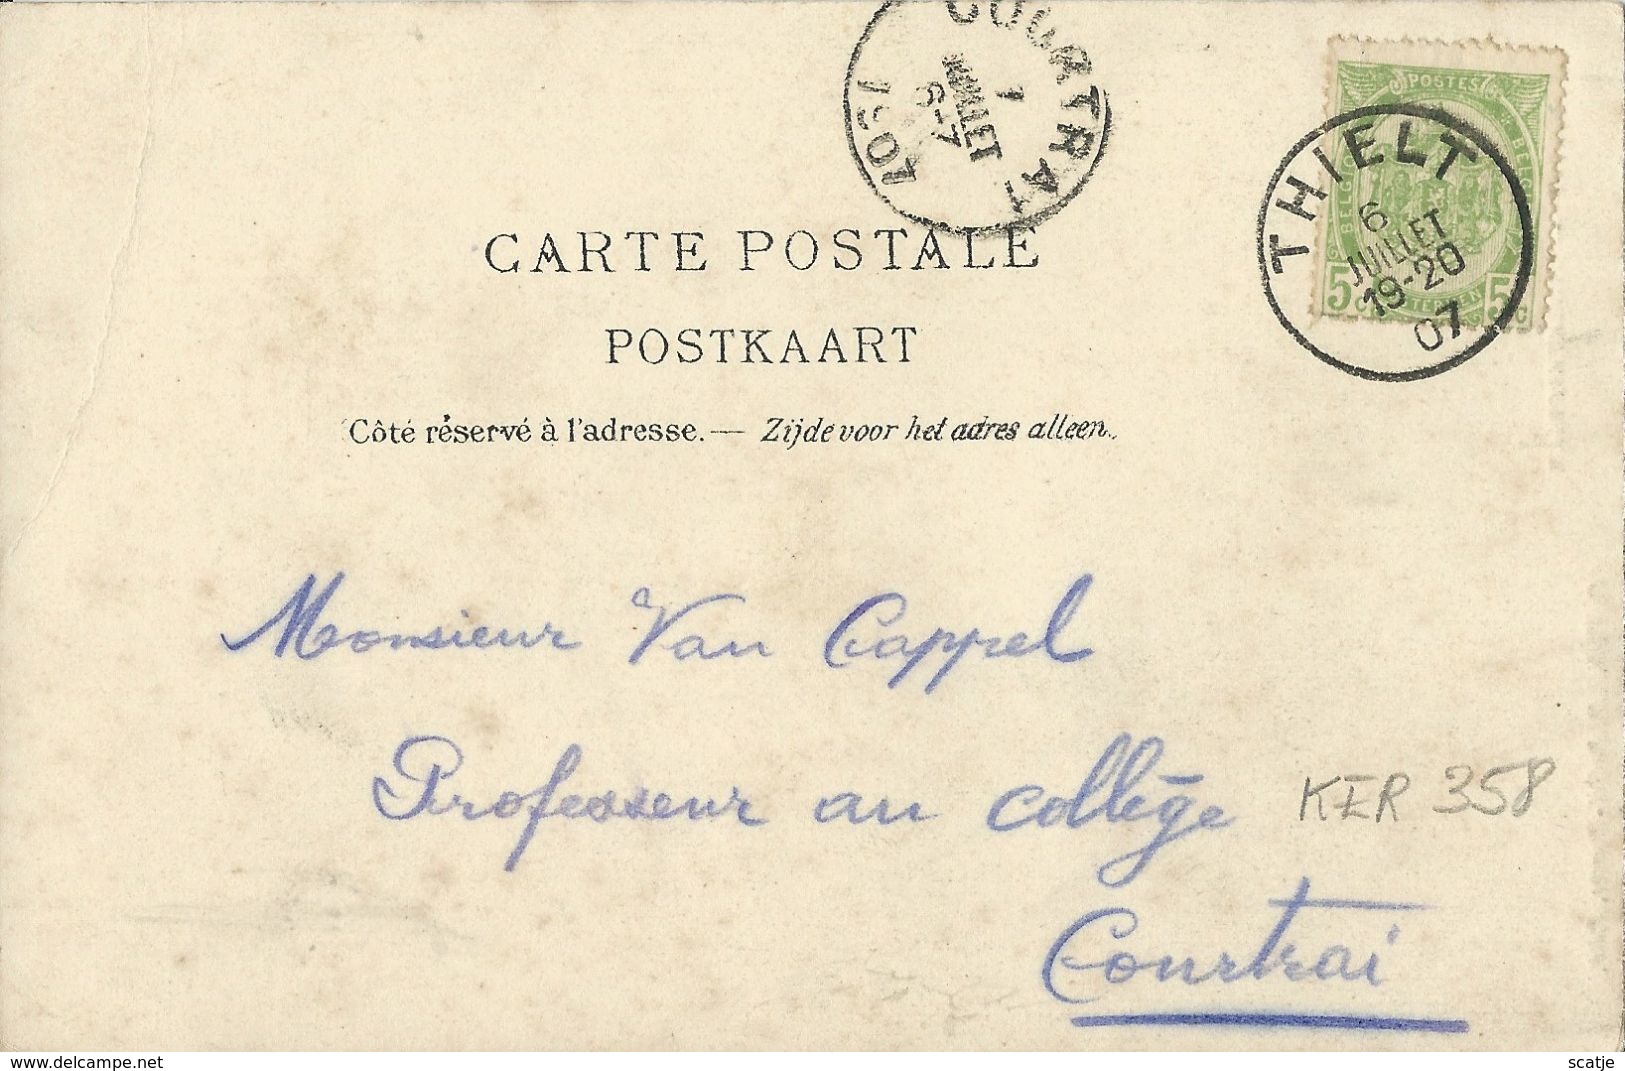 COURTRAI
7
JUILLET
6-7
1907
POSTES
THIELT
6
JUILLET
19-20
07
5c 5c
CARTE POSTALE
POSTKAART
Côté réservé à l'adresse. — Zijde voor het adres alleen.
Monsieur Van Cappel
Professeur au collège
KER 358
Courtrai
delcampe.net
scatje